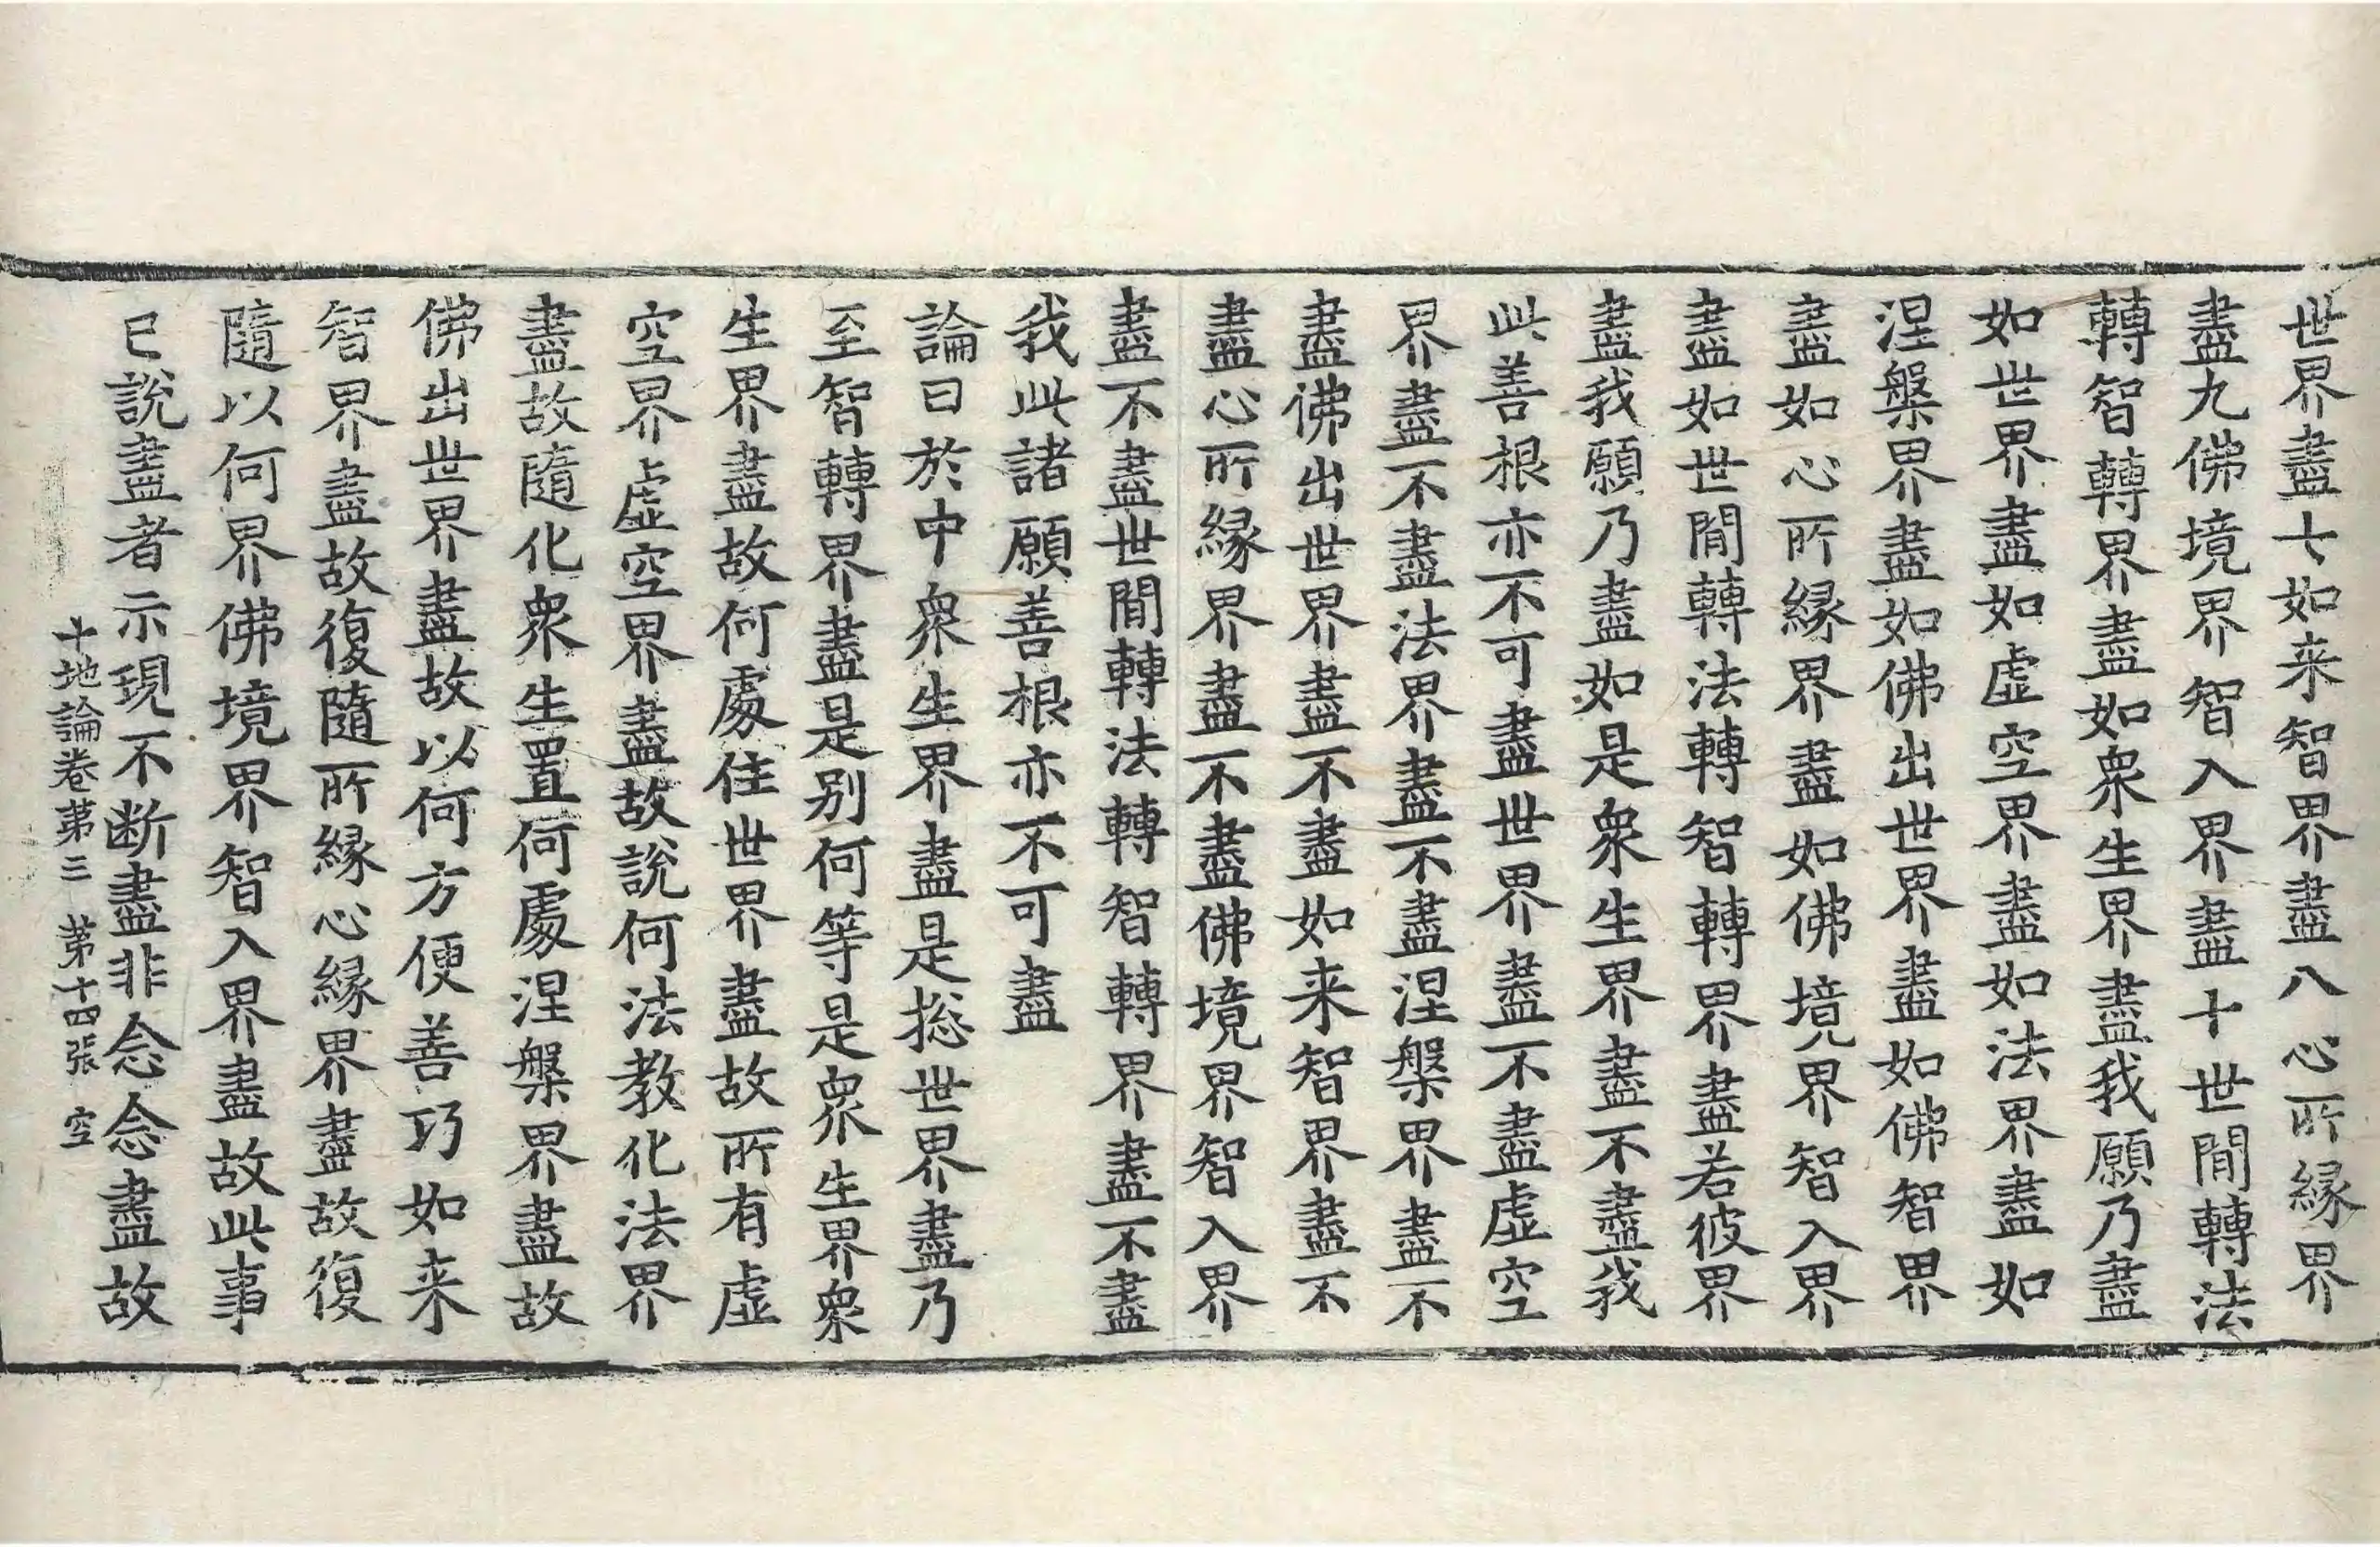 世界盡七如来智界盡八心所縁界
盡九佛境界智入界盡十世閒轉法
轉智轉界盡如衆生界盡我願乃盡
如世界盡如虛空界盡如法界盡如
涅槃界盡如佛出世界盡如佛智界
盡如心所縁界盡如佛境界智入界
盡如世閒轉法轉智轉界盡若彼界
盡我願乃盡如是衆生界盡不盡我
此善根亦不可盡世界盡不盡虛空
界盡不盡法界盡不盡涅槃界盡不
盡佛出世界盡不盡如来智界盡不
盡心所縁界盡不盡佛境界智入界
盡不盡世閒轉法轉智轉界盡不盡
我此諸願善根亦不可盡
論曰於中衆生界盡是捴世界盡乃
至智轉界盡是别何等是衆生界衆
生界盡故何處住世界盡故所有虛
空界虛空界盡故說何法教化法界
盡故隨化衆生置何處涅槃界盡故
佛出世界盡故以何方便善巧如来
智界盡故復隨所縁心縁界盡故復
隨以何界佛境界智入界盡故此事
已說盡者示現不断盡非念念盡故
十地論卷第三　第十四張　空